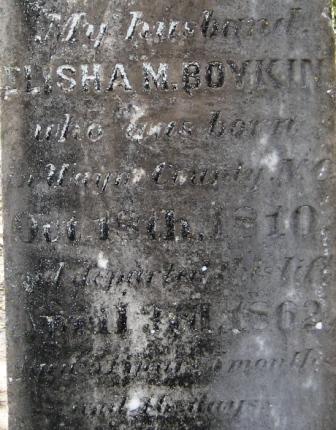 My husband.
ELISHA M. BOYKIN
who was born
in Wayne County, N.C.
Oct. 18th, 1810.
and departed this life
April 3rd, 1862
months
and days